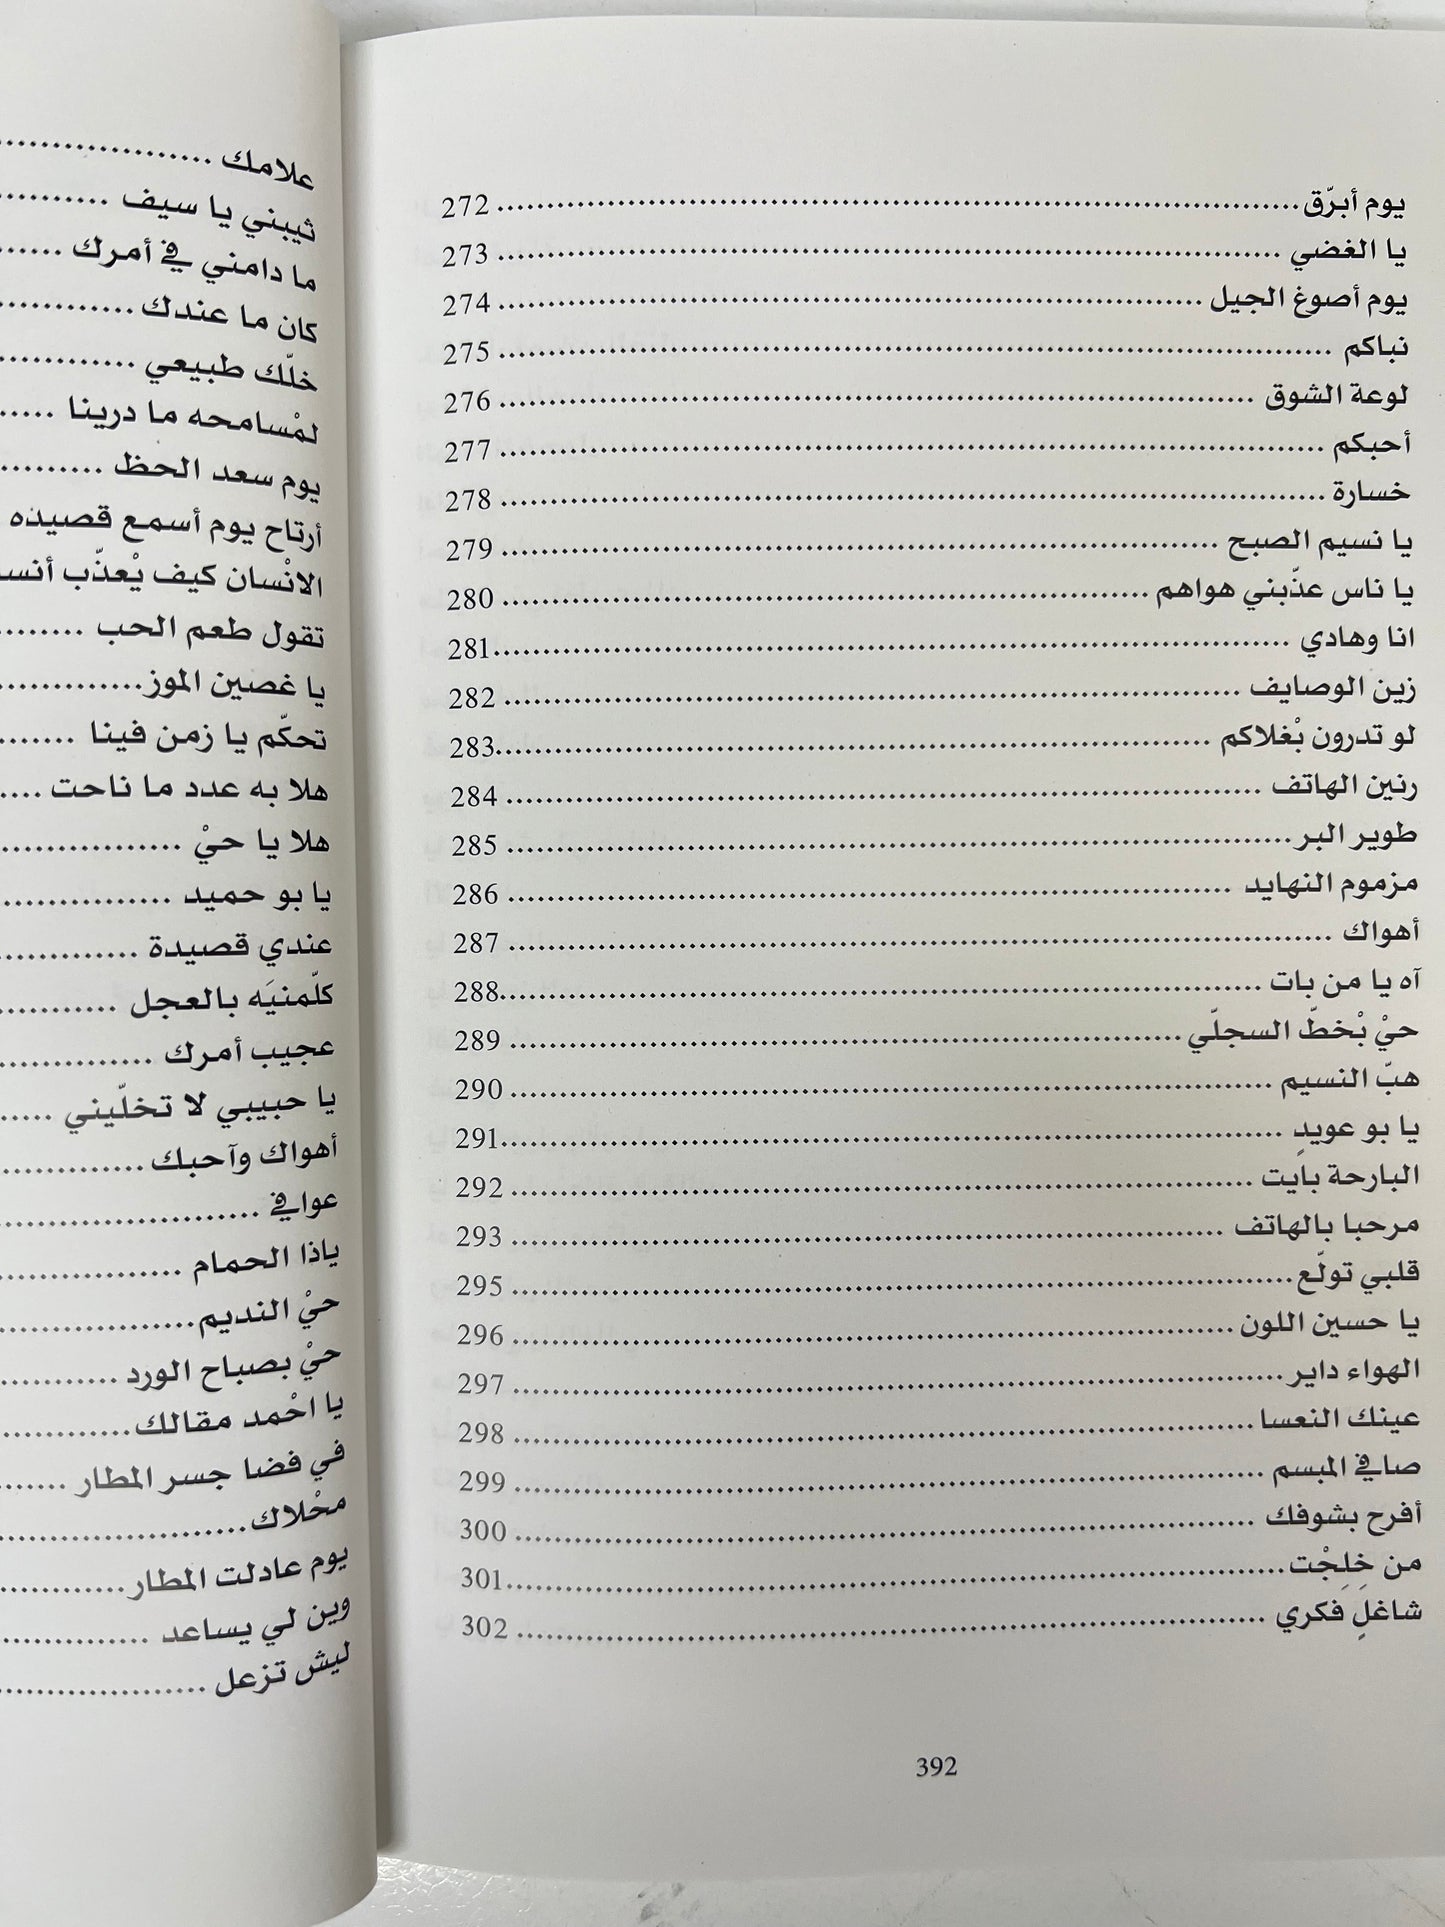 يوم أبرّق ........ 272
يا الغضي ........ 273
يوم أصوغ الجيل ........ 274
نباكم ........ 275
لوعة الشوق ........ 276
أحبكم ........ 277
خسارة ........ 278
يا نسيم الصبح ........ 279
يا ناس عذّبني هواهم ........ 280
انا وهادي ........ 281
زين الوصايف ........ 282
لو تدرون بْغلاكم ........ 283
رنين الهاتف ........ 284
طوير البر ........ 285
مزموم النهايد ........ 286
أهواك ........ 287
آه يا من بات ........ 288
حيْ بْخطّ السجلّي ........ 289
هبّ النسيم ........ 290
يا بو عويدٍ ........ 291
البارحة بايت ........ 292
مرحبا بالهاتف ........ 293
قلبي تولّع ........ 295
يا حسين اللون ........ 296
الهواء داير ........ 297
عينك النعسا ........ 298
صافي المبسم ........ 299
أفرح بشوفك ........ 300
من خِلِجْت ........ 301
شاغلٍ فكري ........ 302
392
علامك ........
ثيبني يا سيف ........
ما دامني في أمرك ........
كان ما عندك ........
خلّك طبيعي ........
لمْسامحه ما درينا ........
يوم سعد الحظ ........
أرتاح يوم أسمع قصيده
الانْسان كيف يْعذّب
تقول طعم الحب ........
يا غصين الموز ........
تحكّم يا زمن فينا ........
هلا به عدد ما ناحت ........
هلا يا حيْ ........
يا بو حميد ........
عندي قصيدة ........
كلّمنيَه بالعجل ........
عجيب أمرك ........
يا حبيبي لا تخلّيني ........
أهواك وآحبك ........
عوافي ........
ياذا الحمام ........
حيْ النديم ........
حيْ بصباح الورد ........
يا احْمد مقالك ........
في فضا جسر المطار ........
محْلاك ........
يوم عادلت المطار ........
وين لي يساعد ........
ليش تزعل ........